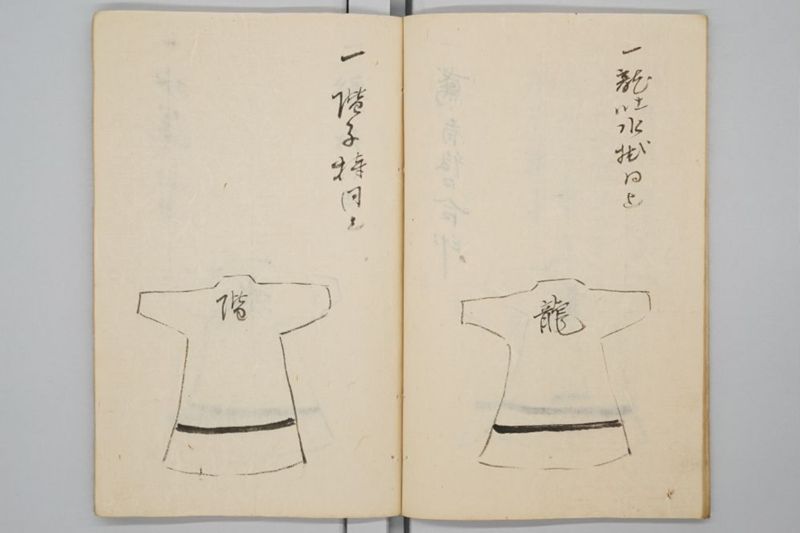 一龍吐水持同上
龍
一階子持同上
階